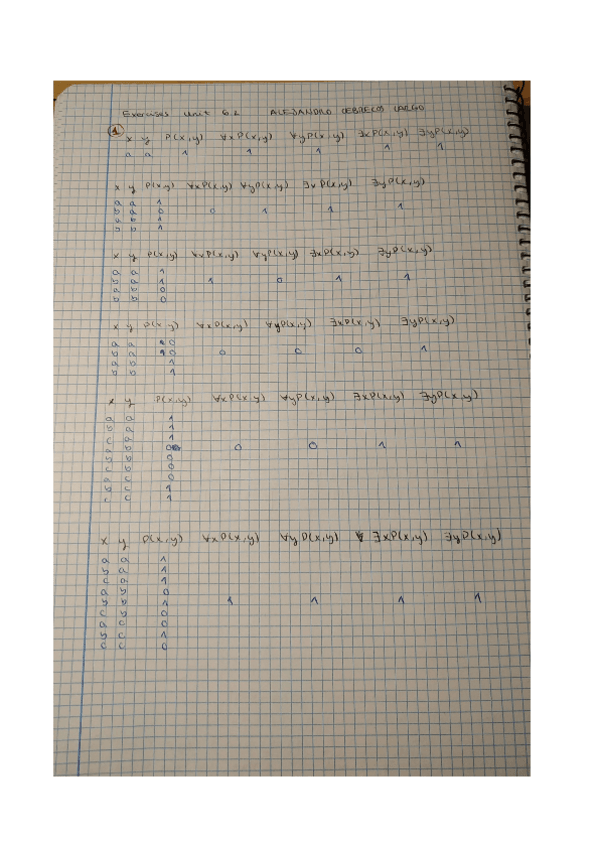 Exercises Unit 6.2 ALEJANDRO CEBRECOS LARGO
1
x y P(x,y) ∀xP(x,y) ∀yP(x,y) ∃xP(x,y) ∃yP(x,y)
a a 1 1 1 1 1
x y P(x,y) ∀xP(x,y) ∀yP(x,y) ∃xP(x,y) ∃yP(x,y)
a a 1
b a 0 0 1 1 1
a b 1
b b 1
x y P(x,y) ∀xP(x,y) ∀yP(x,y) ∃xP(x,y) ∃yP(x,y)
a a 1
b a 1 1 0 1 1
a b 0
b b 0
x y P(x,y) ∀xP(x,y) ∀yP(x,y) ∃xP(x,y) ∃yP(x,y)
a a 0
b a 0 0 0 0 1
a b 1
b b 1
x y P(x,y) ∀xP(x,y) ∀yP(x,y) ∃xP(x,y) ∃yP(x,y)
a a 1
b a 1
c a 1
a b 0 0 0 1 1
b b 0
c b 0
a c 0
b c 1
c c 1
x y P(x,y) ∀xP(x,y) ∀yP(x,y) ∃xP(x,y) ∃yP(x,y)
a a 1
b a 1
c a 1
a b 0
b b 1 1 1 1 1
c b 0
a c 0
b c 1
c c 0